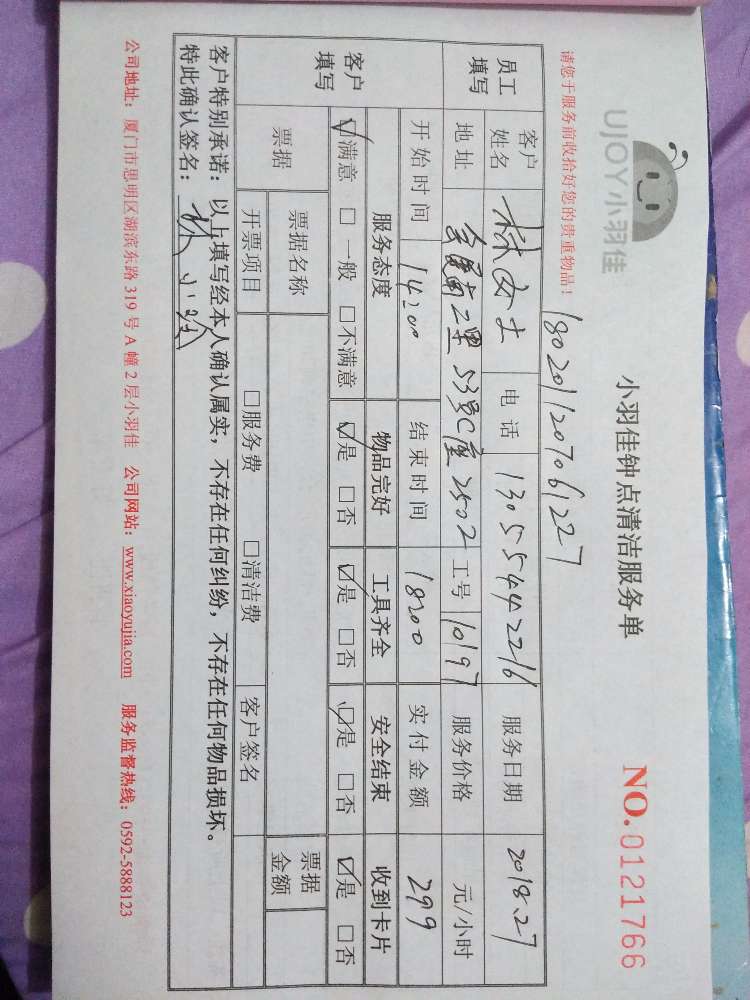 UJOY小羽佳
小羽佳钟点清洁服务单
NO.0121766
请您于服务前收拾好您的贵重物品！
1802011207061227
员工填写
客户姓名 林女士 电话 13055442216 服务日期 2018.2.7
地址 南二里53号C座2502 工号 10197 服务价格 元/小时
开始时间 14:00 结束时间 18:00 实付金额 299
客户填写
服务态度 物品完好 工具齐全 安全结束 收到卡片
☑满意 □一般 □不满意 ☑是 □否 ☑是 □否 ☑是 □否 ☑是 □否
票据 票据名称 票据金额
开票项目 □服务费 □清洁费 客户签名
客户特别承诺：以上填写经本人确认属实，不存在任何纠纷，不存在任何物品损坏。
特此确认签名：林小
公司地址：厦门市思明区湖滨东路 319 号 A 幢 2 层小羽佳 公司网站：www.xiaoyujia.com 服务监督热线：0592-5888123